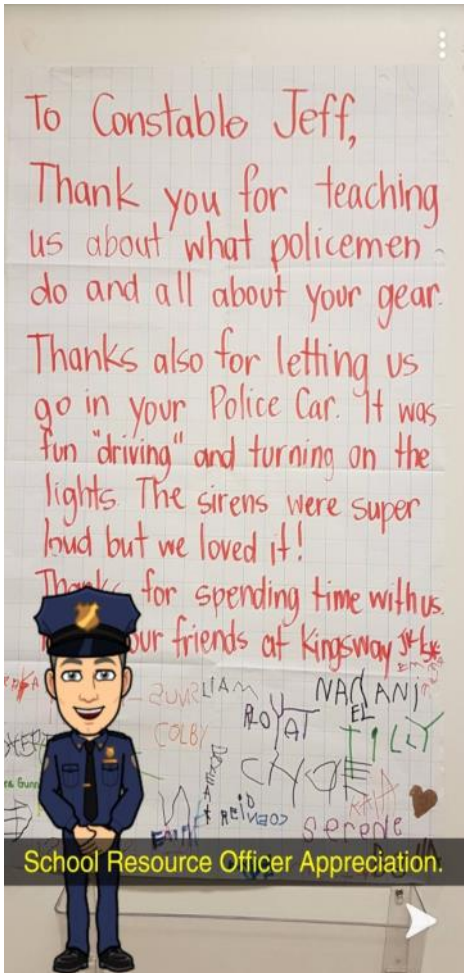 To Constable Jeff,
Thank you for teaching
us about what policemen
do and all about your gear.
Thanks also for letting us
go in your Police Car. It was
fun "driving" and turning on the
lights. The sirens were super
loud but we loved it!
Thanks for spending time with us.
our friends at Kingsway
LIAM
NATANI
EL
ROYAT
COLBY
TILLY
CHOE
Reid
KAIA
serene
School Resource Officer Appreciation.